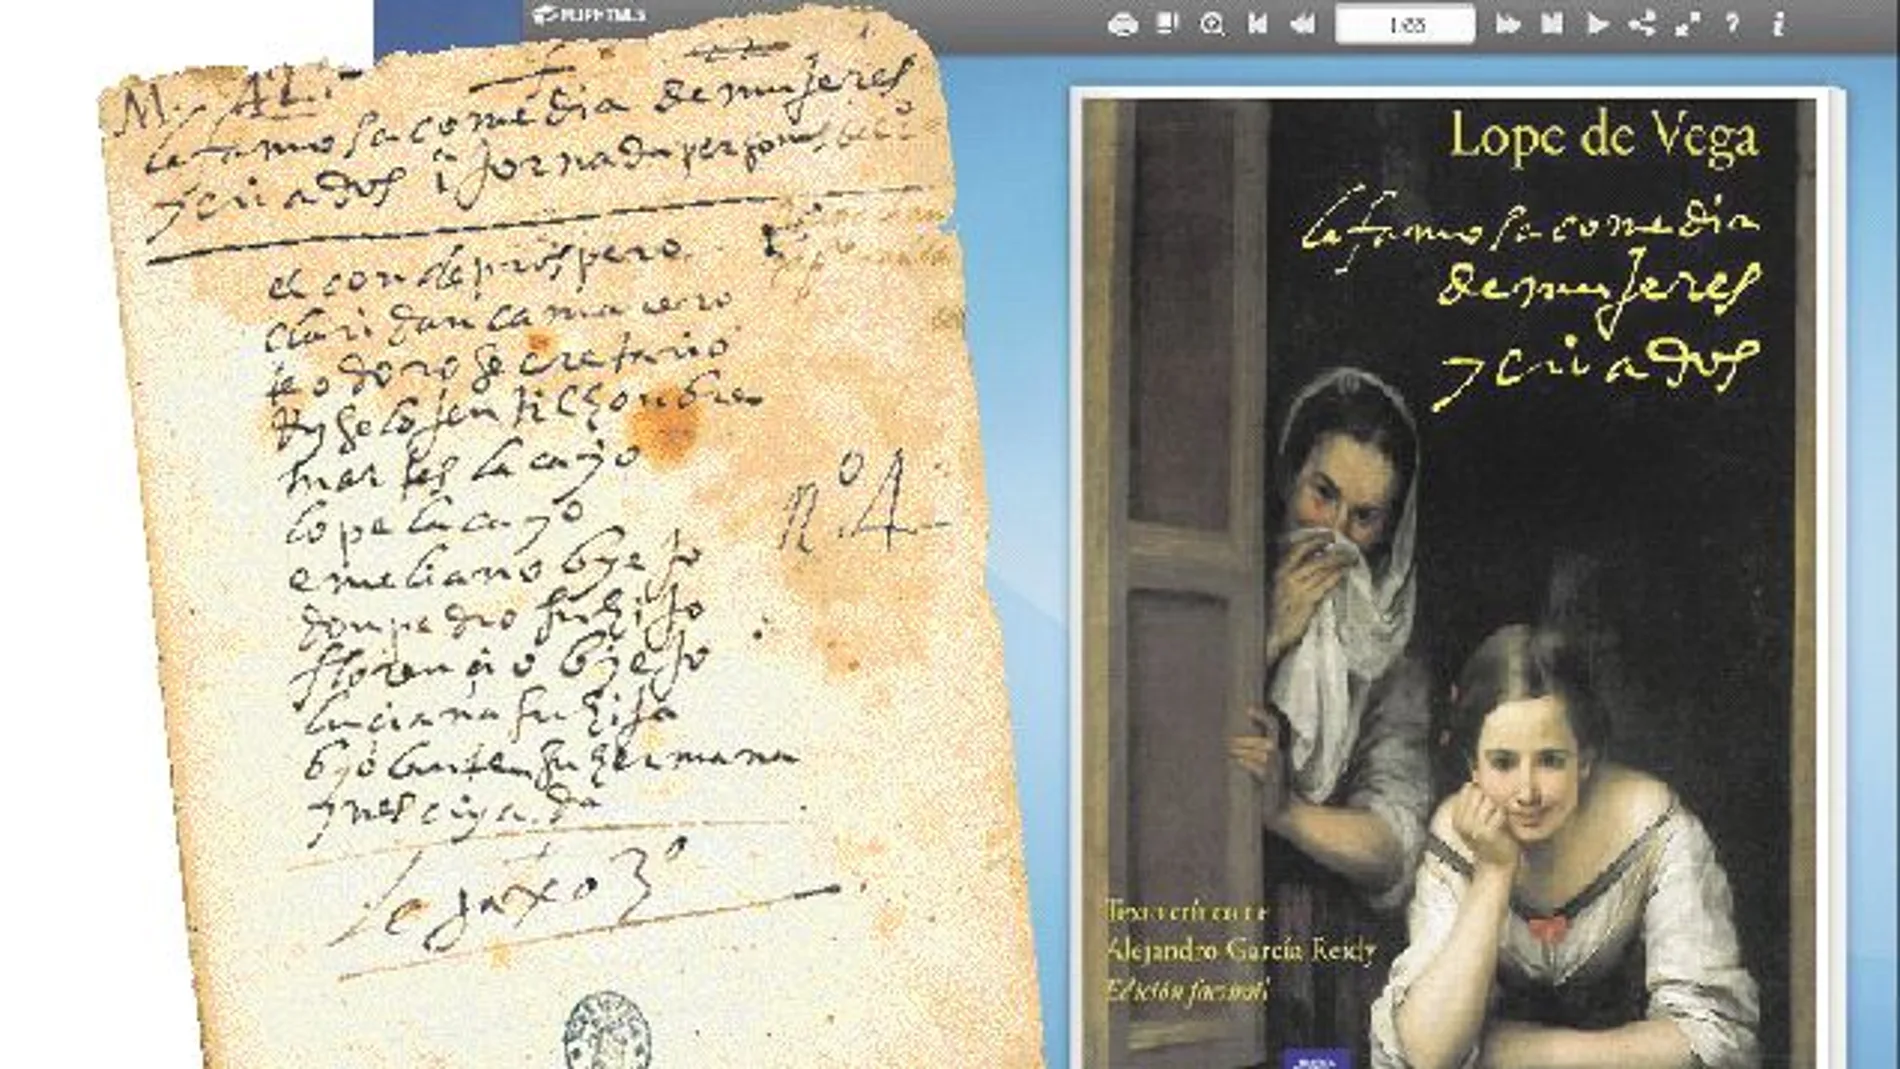 FLIPHTML5
1/68
la famosa comedia de mujeres
y criados i Jornada personas
el conde prospero
claridan camarero
teodoro secretario
gentilhonbre
martes lacayo
lope lacayo
emeliano byejo
don pedro su hijo
florencio byejo
luciana su hija
byolante su hermana
y nes criyada
nº 4
Lope de Vega
la famosa comedia
de mujeres
y criados
Texto crítico de
Alejandro García Reidy
Edición facsímil